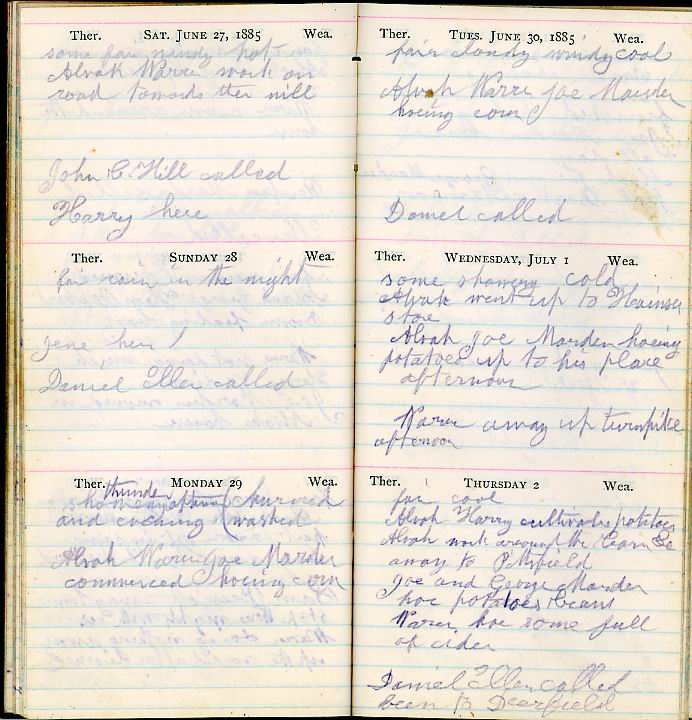 Ther. SAT. JUNE 27, 1885 Wea.
some fair windy hot
Alvah Warren work on
road towards the mill
John C Hill called
Harry here
Ther. SUNDAY 28 Wea.
fair rain in the night
gene here
Daniel Ellen called
Ther. MONDAY 29 Wea.
thunder
showery afternoon churned
and evening washed
Alvah Warren Joe Marden
commenced hoeing corn
Ther. TUES. JUNE 30, 1885 Wea.
fair cloudy windy cool
Alvah Warren Joe Marden
hoeing corn
Daniel called
Ther. WEDNESDAY, JULY 1 Wea.
some showery cold
Alvah went up to
store
Alvah Joe Marden hoeing
potatoes up to his place
afternoon
Warren away up turnpike
afternoon
Ther. THURSDAY 2 Wea.
fair cool
Alvah Harry cultivate potatoes
Alvah work around the &c
away to Pittsfield
Joe and George Marden
hoe potatoes beans
Warren hoe some full
of cider
Daniel Ellen called
been to Deerfield